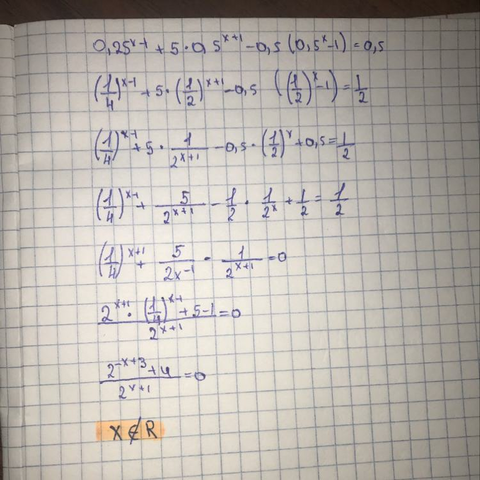 0,25^(x-1) + 5·0,5^(x+1) - 0,5 (0,5^x - 1) = 0,5
(1/4)^(x-1) + 5·(1/2)^(x+1) - 0,5 ((1/2)^x - 1) = 1/2
(1/4)^(x-1) + 5· 1/2^(x+1) - 0,5·(1/2)^x + 0,5 = 1/2
(1/4)^(x-1) + 5/2^(x+1) - 1/2 · 1/2^x + 1/2 = 1/2
(1/4)^(x+1) + 5/2x^(-1) - 1/2^(x+1) = 0
(2^(x+1) · (1/4)^(x-1) + 5-1)/2^(x+1) = 0
(2^(-x+3) + 4)/2^(x+1) = 0
x ∉ R